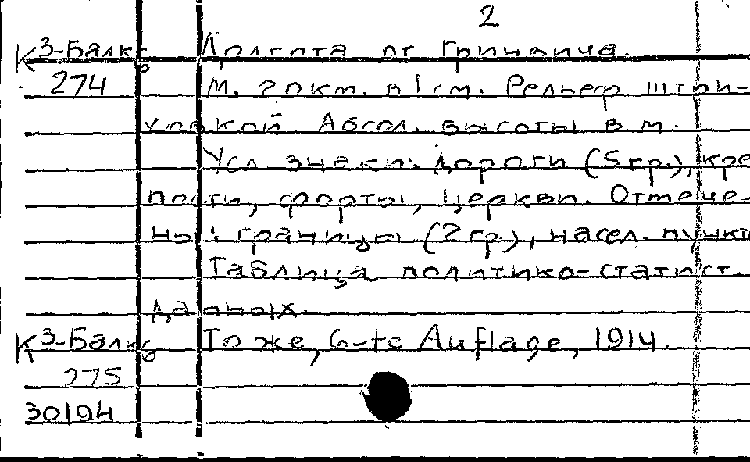 2
К 3-Балкъ Долгота от Гринвича.
274 М. 20км. в 1 см. Рельеф штри-
ховкой. Абсол. высоты в м.
Усл. знаки: дороги (5 гр.), кре
пости, форты, церкви. Отмече-
ны: границы (2 гр), насел. пункт
Таблица политико-статист.
данных.
К 3-Балкъ То же, 6-te Auflage, 1914.
275
30194